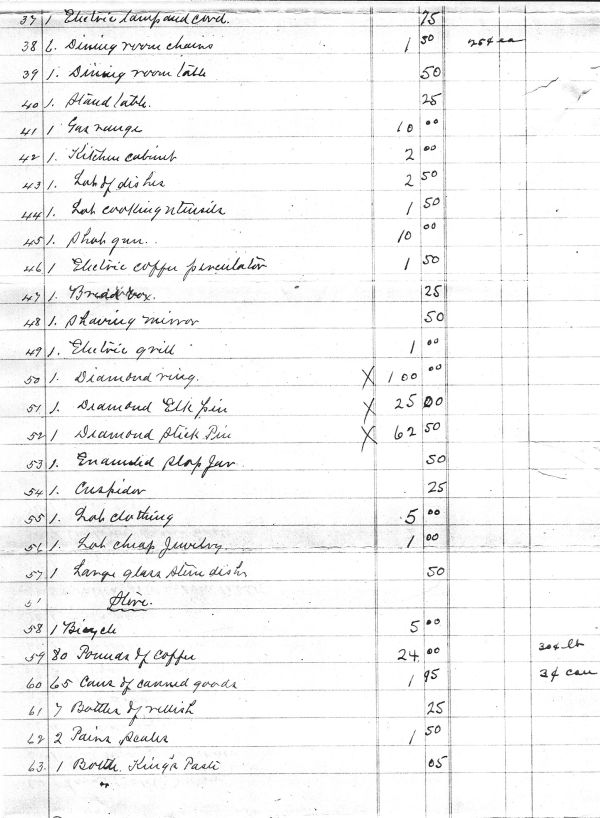 37 1 Electric lamp and cord. 75
38 6. Dining room chairs 1 50 25¢ ea
39 1. Dining room table 50
40 1. Stand table. 25
41 1 Gas range 10 00
42 1. Kitchen cabinet 2 00
43 1. Lot of dishes 2 50
44 1. Lot cooking utensils 1 50
45 1. Shot gun.. 10 00
46 1 Electric coffee perculator 1 50
47 1. Bread box. 25
48 1. Shaving mirror 50
49 1. Electric grill 1 00
50 1. Diamond ring. X 100 00
51 1. Diamond Elk pin X 25 00
52 1 Diamond Stick Pin X 62 50
53 1. Enameled Slop Jar. 50
54 1. Cuspidor 25
55 1. Lot clothing 5 00
56 1. Lot cheap Jewelry. 1 00
57 1 Large glass Stem dish 50
Store.
58 1 Bicycle 5 00
59 80 Pounds of coffee 24. 00 30¢ lb
60 65 Cans of canned goods 1 95 3¢ can
61 7 Bottles of rellish 25
62 2 Pairs Scales 1 50
63. 1 Bottle King's Paste 05